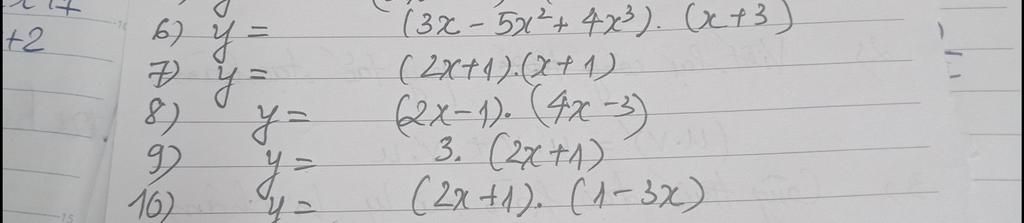 +2
6) y = (3x - 5x² + 4x³). (x+3)
7) y = (2x+1).(x+1)
8) y = (2x-1). (4x-3)
9) y = 3. (2x+1)
10) y = (2x+1). (1-3x)